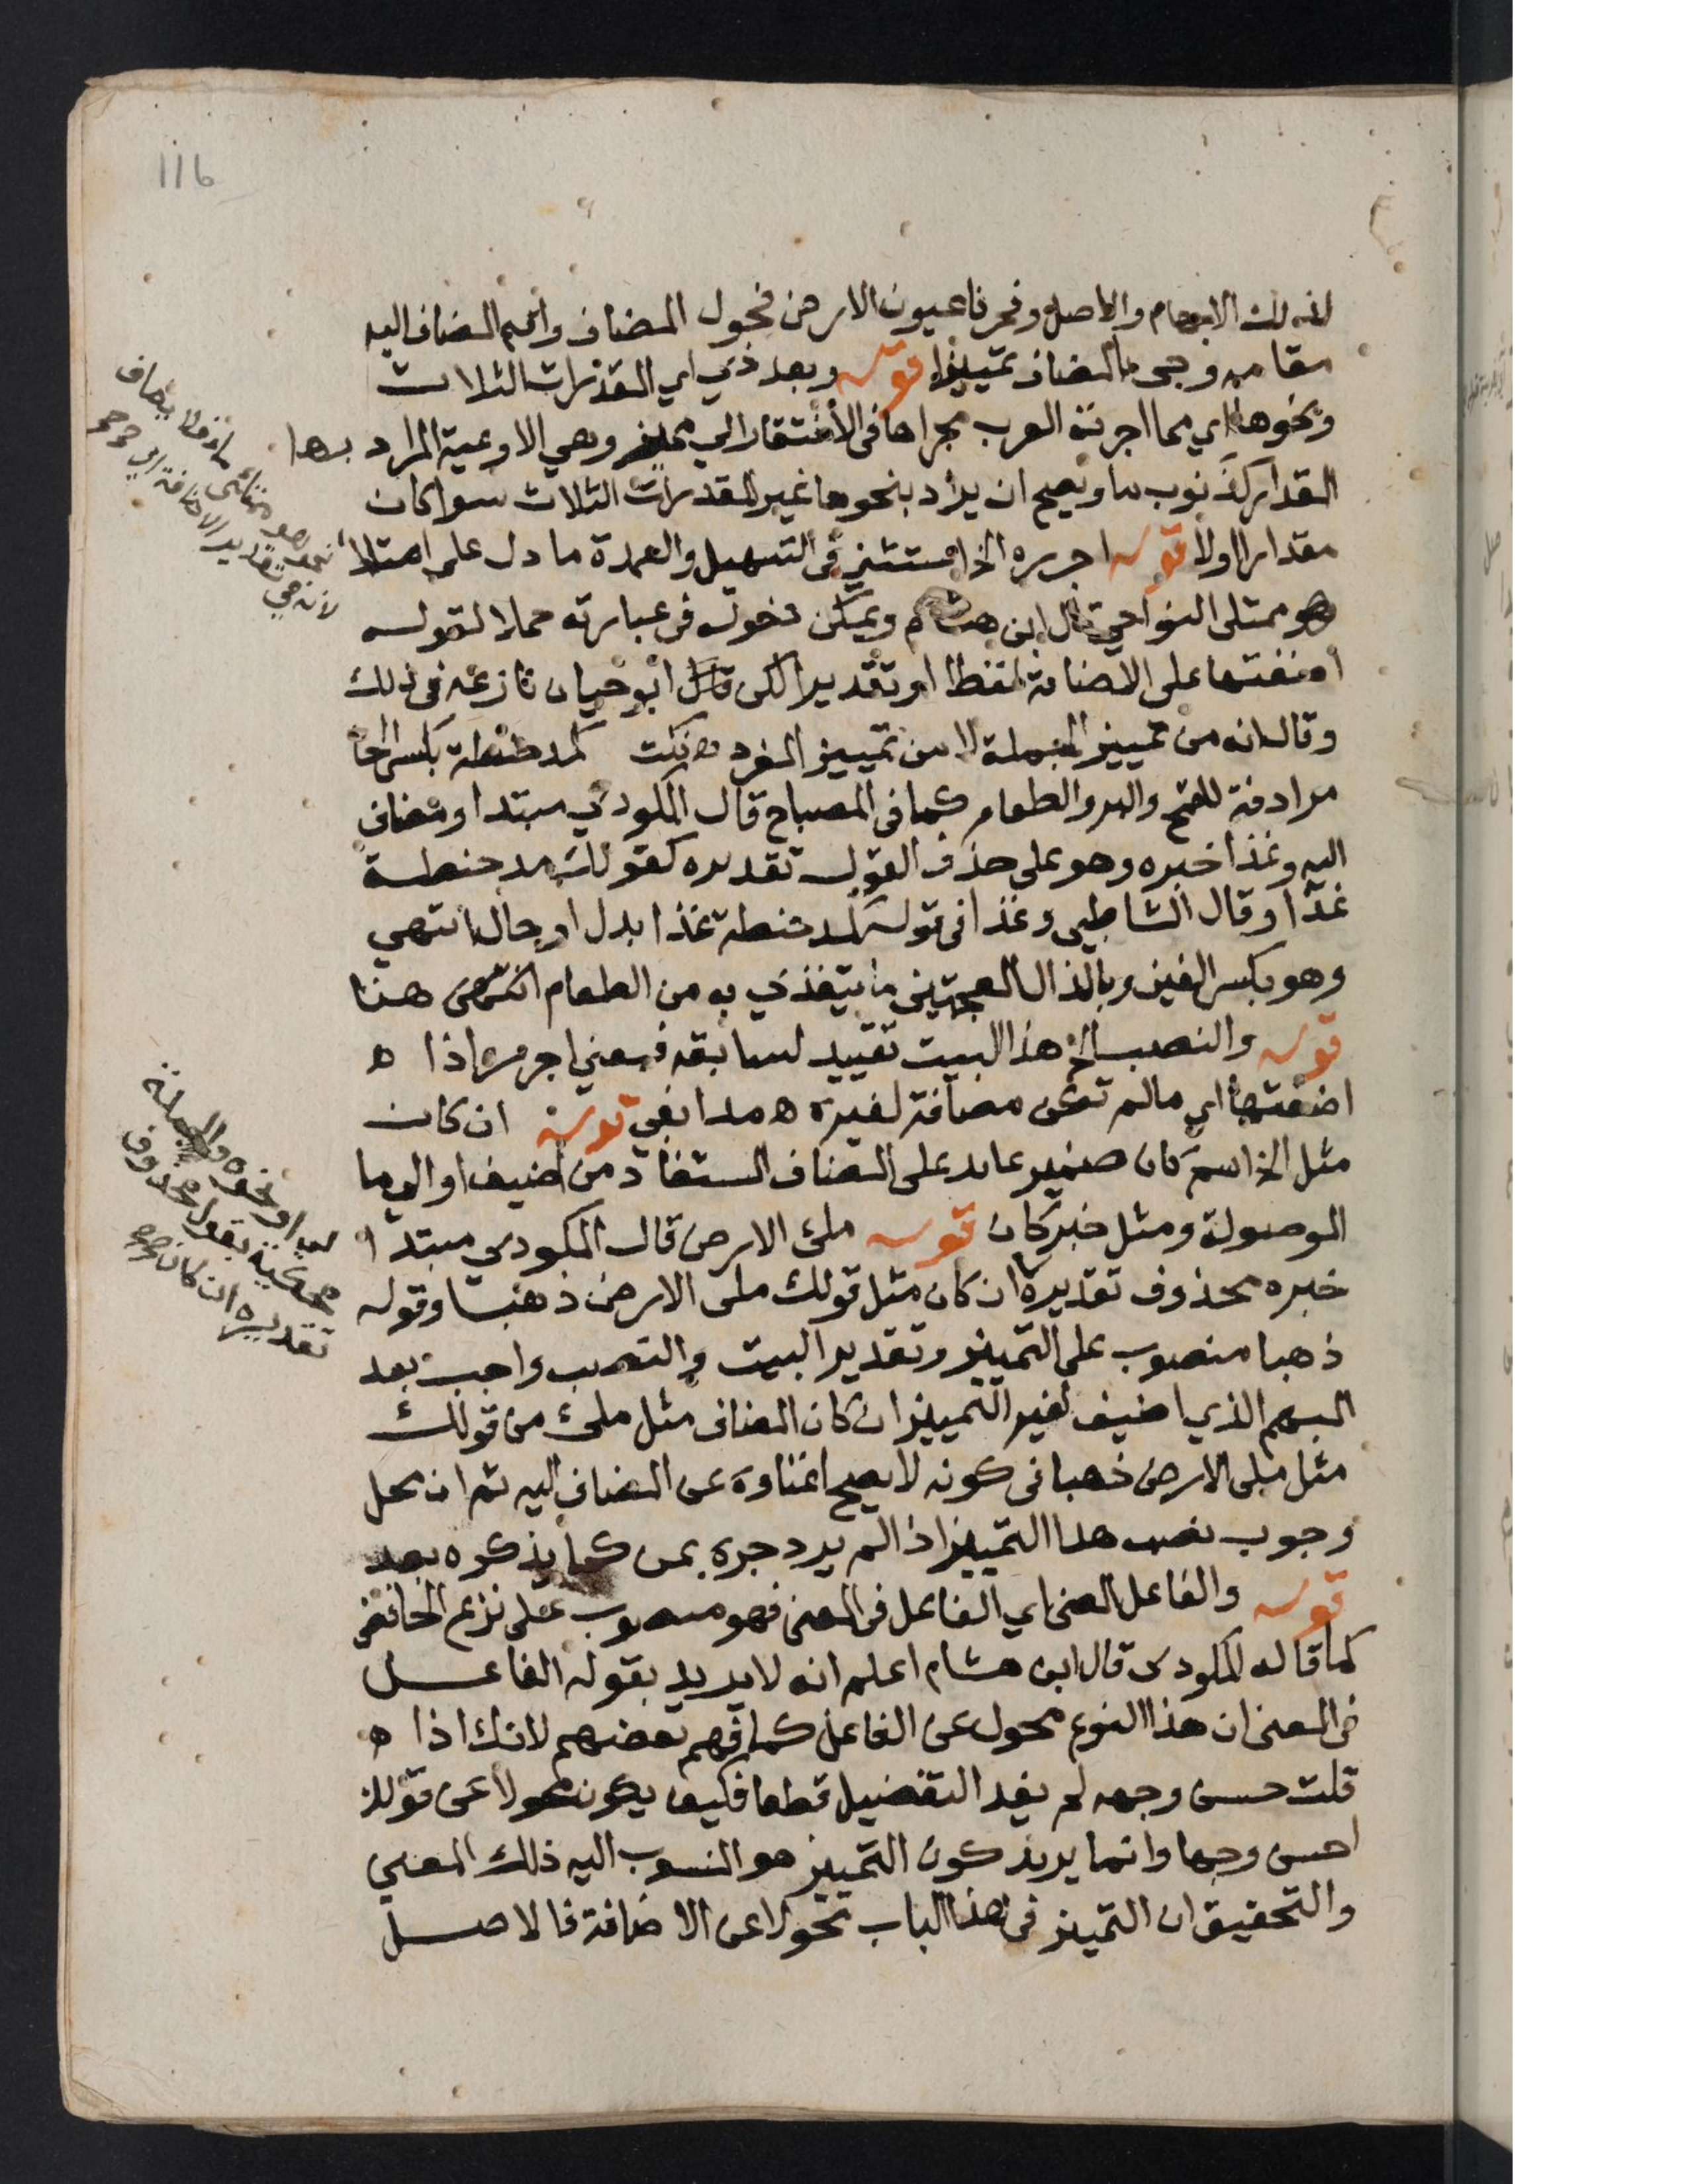 116
لذلك الابهام والاصل وفجرنا عيون الارض فحول المضاف واقيم المضاف اليه
مقامه وجئ بالمضاف تمييزا قوله وبعد ذي اي المقدرات الثلاث
ونحوها اي مما اجرته العرب مجراها في الافتقار الي مميز وهي الاوعية المراد بها
المقدار كذنوب ماء ويصح ان يراد بنحوها غير المقدرات الثلاث سوا كان
مقدارا اولا قوله اجرره الخ استثني في التسهيل والعمدة ما دل على امتلا
هو ممتلى النواحي قال ابن هشام ويمكن دخوله في عبارته حملا لقوله
اضفتها على الاضافة لفظا او تقديرا لكن قال ابو حيان نازعه في ذلك
وقال انه من تمييز الجملة لا من تمييز المفرد ه نكت كمد حنطة بكسر الحا
مرادفة للقمح والبر والطعام كما في المصباح قال المكودي مبتدا ومضاف
اليه وغذا خبره وهو على حذف القول تقديره كقولك مد حنطة
غذا وقال الشاطبي وغذا في قوله كمد حنطة غذا بدل او حال انتهي
وهو بكسر الغين وبالذال المعجمتين ما يتغذي به من الطعام انتهى هنا
قوله والنصب الخ هذا البيت تقييد لسابقه فمعني اجرره اذا ه
اضفتها اي مالم تكن مضافة لغيره ه مدابغي قوله ان كان
مثل الخ اسم كان ضمير عايد على المضاف المستفاد من اضيف او الي ما
الموصولة ومثل خبر كان قوله ملئ الارض قال المكودي مبتدا
خبره محذوف تقديره ان كان مثل قولك ملئ الارض ذهبا وقوله
ذهبا منصوب على التمييز وتقدير البيت والنصب واجب بعد
المبهم الذي اضيف لغير التمييز ان كان المضاف مثل ملئ من قولك
مثل ملئ الارض ذهبا في كونه لا يصح اغناوه عن المضاف اليه ثم ان محل
وجوب نصب هذا التمييز اذا لم يرد جره بمن كما يذكره بعد
قوله والفاعل المعنى اي الفاعل في المعنى فهو منصوب على نزع الخافض
كما قاله المكودى قال ابن هشام اعلم انه لا يريد بقوله الفاعل
في المعنى ان هذا النوع محول عن الفاعل كما فهم بعضهم لانك اذا ه
قلت حسن وجهه لم يفد التفضيل قطعا فكيف يكون محولا عن قولك
احسن وجها وانما يريد كون التمييز هو المنسوب اليه ذلك المعني
والتحقيق ان التمييز في هذا الباب محولا عن الاضافة فالاصل
لانه في تقدير الاضافة
اي او نحوه والجملة
محكية بقول محذوف
تقديره ان كان